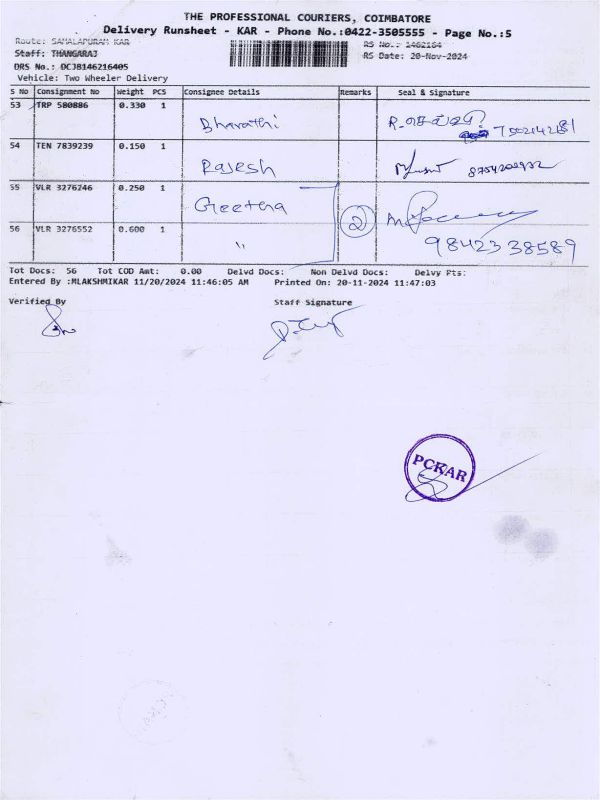 THE PROFESSIONAL COURIERS, COIMBATORE
Delivery Runsheet - KAR - Phone No.:0422-3505555 - Page No.:5
Route: SAMALAPURAM KAR
RS No.: 1462164
Staff: THANGARAJ
RS Date: 20-Nov-2024
DRS No.: DCJB146216405
Vehicle: Two Wheeler Delivery
S No Consignment No Weight PCS Consignee Details Remarks Seal & Signature
53 TRP 580886 0.330 1
Bharathi
54 TEN 7839239 0.150 1
Rajesh
55 VLR 3276246 0.250 1
Geetha
2
56 VLR 3276552 0.600 1
" 9842338589
Tot Docs: 56 Tot COD Amt: 0.00 Delvd Docs: Non Delvd Docs: Delvy Pts:
Entered By :MLAKSHMIKAR 11/20/2024 11:46:05 AM Printed On: 20-11-2024 11:47:03
Verified By Staff Signature
PCKAR